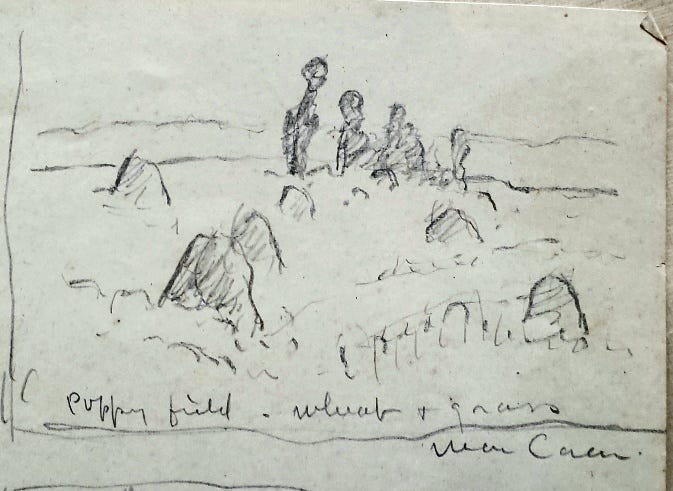 poppy field - wheat & grass
near Caen.